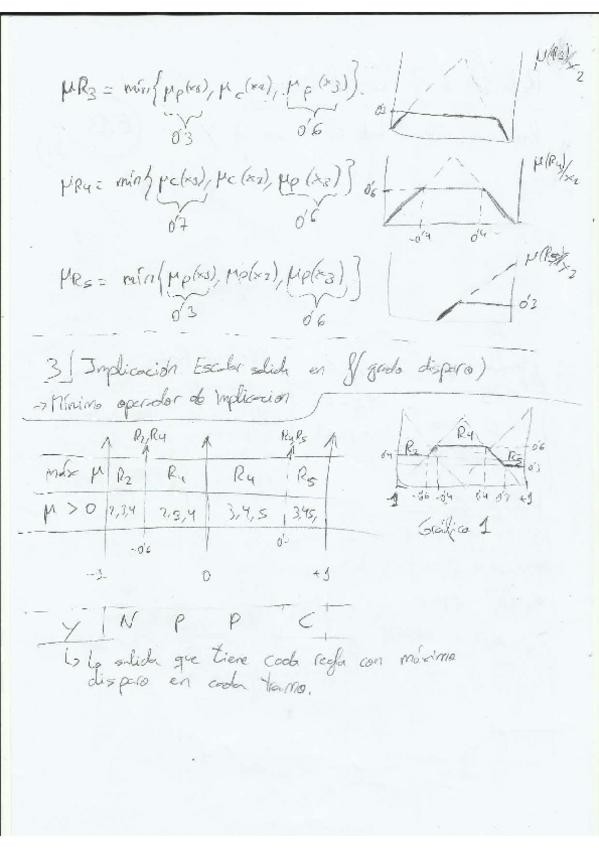 μR3 = mín{μp(x1), μc(x2), μp(x3)}
0'3 0'6
μ(R3)/x2
0'3
μR4 = mín{μc(x1), μc(x2), μp(x3)}
0'7 0'6
μ(R4)/x2
0'6
-0'4 0'4
μR5 = mín{μp(x1), μp(x2), μp(x3)}
0'3 0'6
μ(R5)/x2
0'3
3] Implicación Escalar salida en f(grado disparo)
→ Mínimo operador de Implicacion
R2,R4 R4,R5
máx μ R2 R4 R4 R5
μ > 0 2,3,4 2,3,4 3,4,5 3,4,5,
-0'6
-1 0 +1
R2 R4 R5
0'4 0'6 0'3
-1 -0'6 -0'4 0'4 0'7 +1
Gráfica 1
Y N P P C
↳ La salida que tiene cada regla con máximo
disparo en cada tramo.